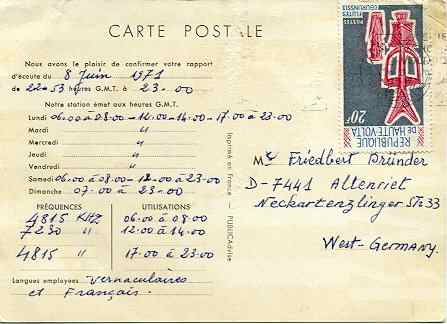 CARTE POSTALE
Nous avons le plaisir de confirmer votre rapport
d'écoute du 8 Juin 1971
de 22-53 heures G.M.T. à 23-00
Notre station émet aux heures G.M.T.
Lundi 06-00 à 08-00-12-00-14-00-17-00 à 23-00
Mardi "
Mercredi "
Jeudi "
Vendredi "
Samedi 06-00 à 08-00-12-00-23-00
Dimanche 07-00 à 23-00
FRÉQUENCES UTILISATIONS
4815 KHZ 06-00 à 08-00
7230 " 12-00 à 14-00
4815 " 17-00 à 23-00
Langues employées Vernaculaires
et Français.
Imprimé en France - PUBLICAdvise
POSTES
FLUTES
20F
REPUBLIQUE
DE HAUTE-VOLTA
Mr Friedbert Bründer
D-7441 Altenriet
Neckartenzlinger Str. 33
West-Germany.